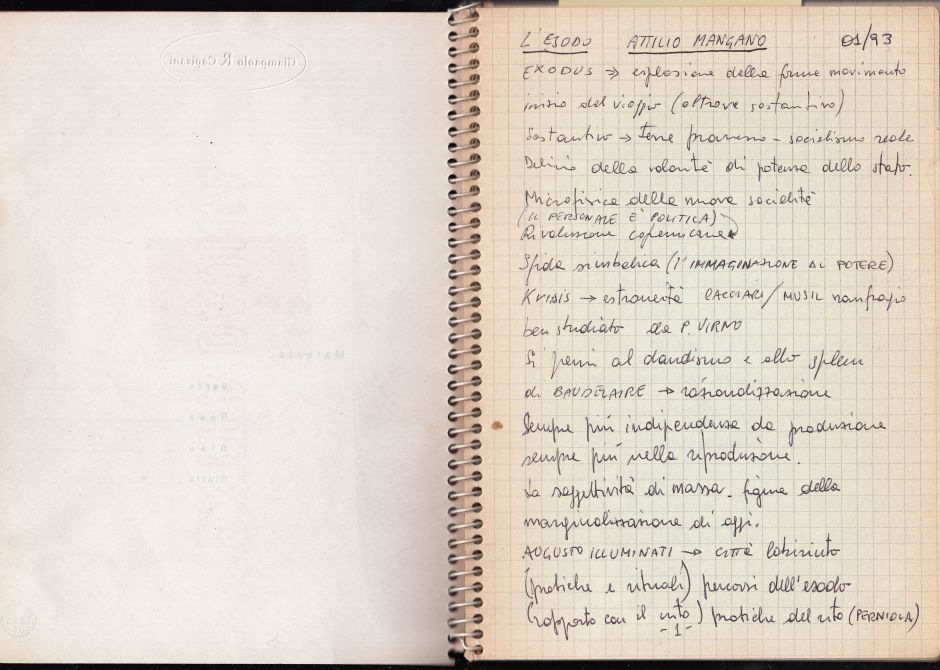 Giampaolo R. Capisani
Materie
Verde
Rosa
Bleu
Giallo
L'ESODO ATTILIO MANGANO 01/93
EXODUS → esplosione della forma movimento
inizio del viaggio (altrove sostantivo)
Sostantivo → Terre promesse - socialismo reale
Delirio della volontà di potenza dello stato.
Microfisica della nuova socialità
(IL PERSONALE È POLITICA)
Rivoluzione copernicana
Sfida simbolica (l'IMMAGINAZIONE AL POTERE)
KRISIS → estraneità CACCIARI/MUSIL naufragio
ben studiato da P. VIRNO
Si pensi al dandismo e allo spleen
di BAUDELAIRE → razionalizzazione
Sempre più indipendenza da produzione
sempre più nella riproduzione.
La soggettività di massa - figura della
marginalizzazione di oggi.
AUGUSTO ILLUMINATI → città labirinto
(pratiche e rituali) percorsi dell'esodo
(rapporto con il mito) pratiche del rito (PERNIOLA)
- 1 -